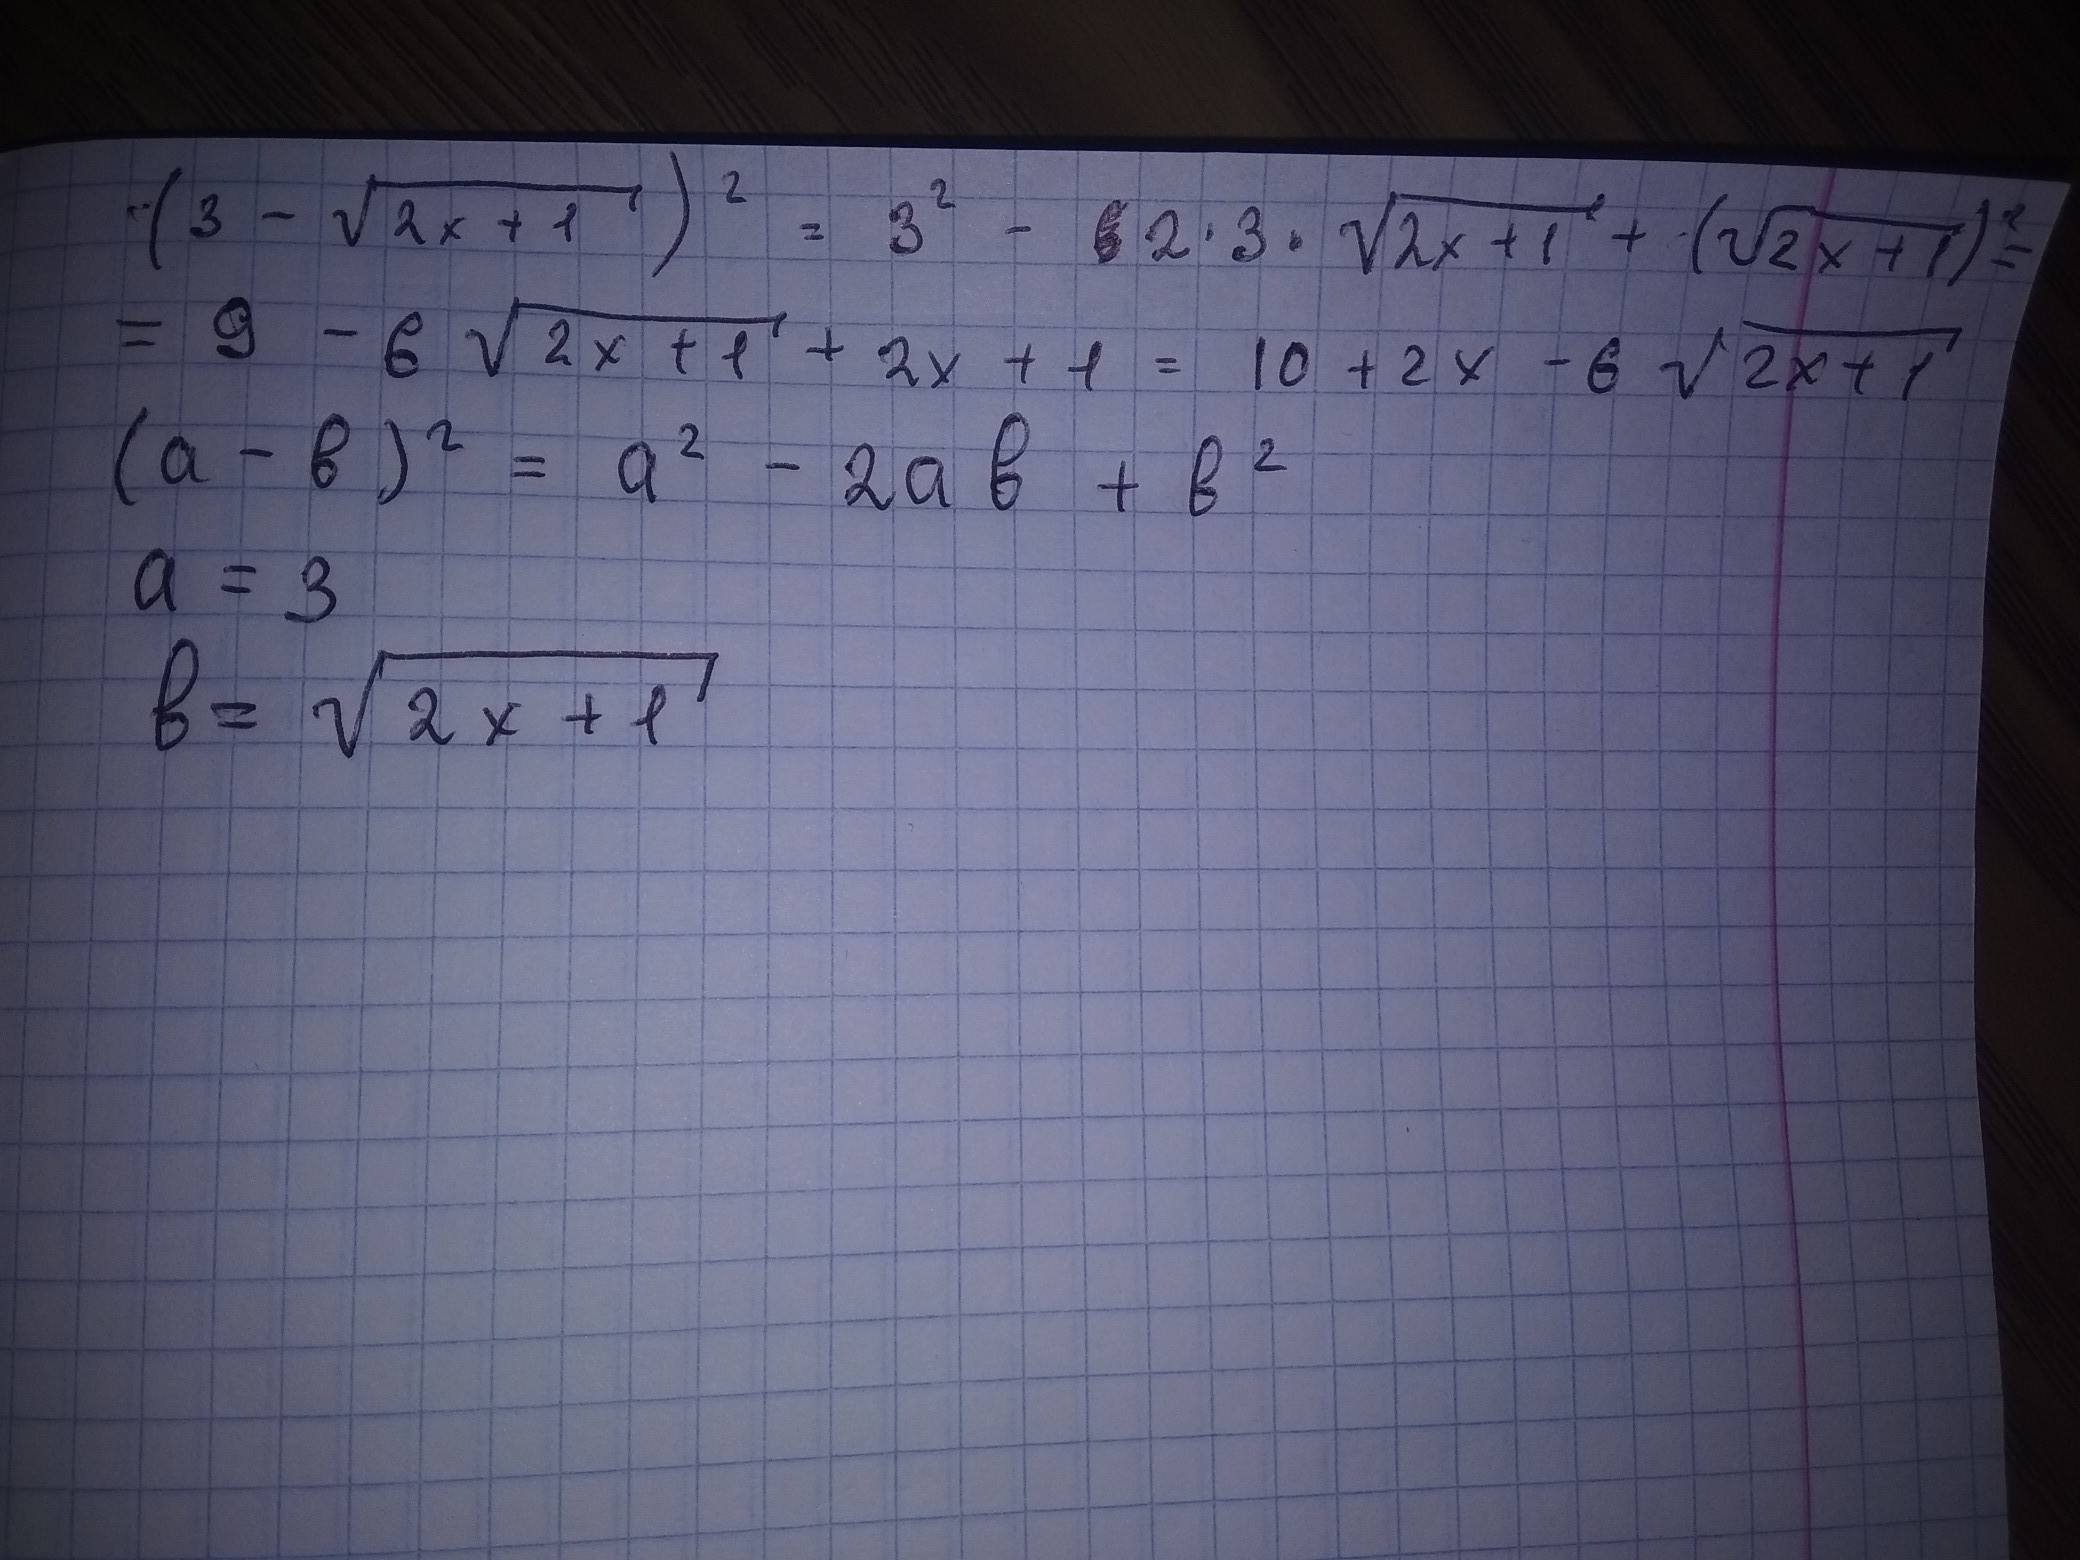 (3 - √(2x + 1))² = 3² - 2·3·√(2x + 1) + (√(2x + 1))² =
= 9 - 6√(2x + 1) + 2x + 1 = 10 + 2x - 6√(2x + 1)
(a - в)² = a² - 2aв + в²
a = 3
в = √(2x + 1)